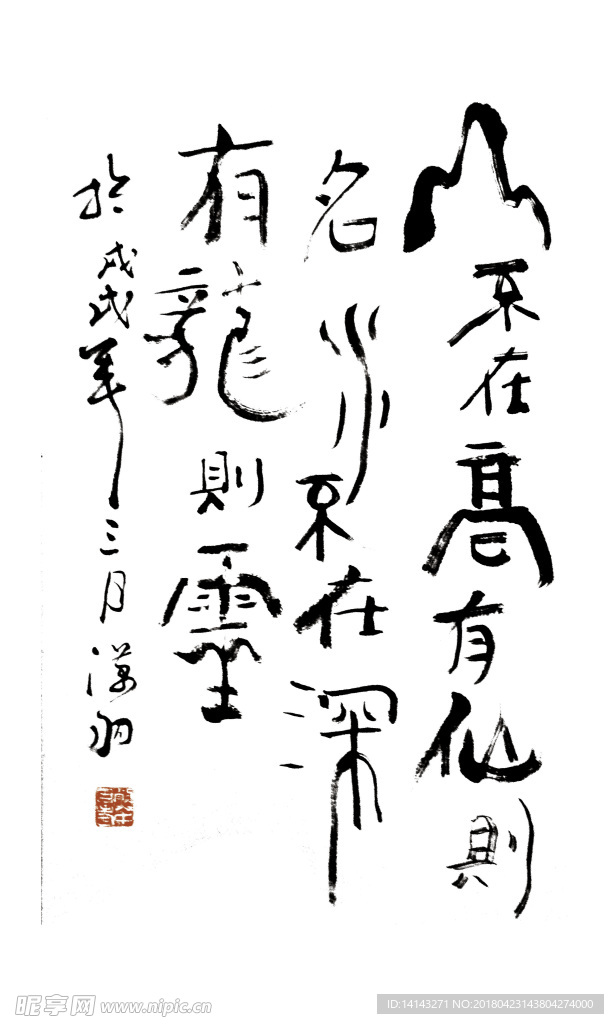 山不在高有仙則
名水不在深
有龍則靈
於戊戌年三月漢羽
昵享网 www.nipic.cn
ID:14143271 NO:20180423143804274000